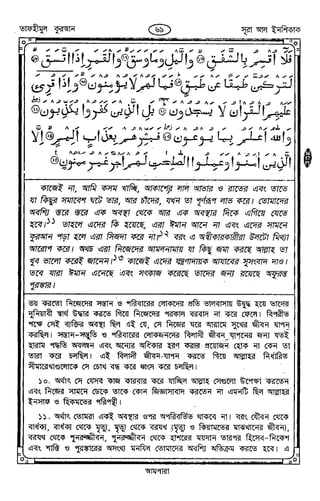 তাফহীমুল কুরআন ৬৯ সূরা আল ইনশিকাক
فَلَآ اُقْسِمُ بِالشَّفَقِ ۝ وَالَّيْلِ وَمَا وَسَقَ ۝ وَالْقَمَرِ اِذَا اتَّسَقَ ۝
لَتَرْكَبُنَّ طَبَقًا عَنْ طَبَقٍ ۝ فَمَا لَهُمْ لَا يُؤْمِنُوْنَ ۝ وَاِذَا قُرِئَ
عَلَيْهِمُ الْقُرْاٰنُ لَا يَسْجُدُوْنَ ۝ بَلِ الَّذِيْنَ كَفَرُوْا يُكَذِّبُوْنَ ۝
وَاللّٰهُ اَعْلَمُ بِمَا يُوْعُوْنَ ۝ فَبَشِّرْهُمْ بِعَذَابٍ اَلِيْمٍ ۝ اِلَّا
الَّذِيْنَ اٰمَنُوْا وَعَمِلُوا الصّٰلِحٰتِ لَهُمْ اَجْرٌ غَيْرُ مَمْنُوْنٍ ۝
কাজেই না, আমি কসম খাচ্ছি, আকাশের লাল আভার ও রাতের এবং তাতে
যা কিছুর সমাবেশ ঘটে তার, আর চাঁদের, যখন তা পূর্ণরূপ লাভ করে। তোমাদের
অবশ্যি স্তরে স্তরে এক অবস্থা থেকে আর এক অবস্থার দিকে এগিয়ে যেতে
হবে।১১ তাহলে এদের কি হয়েছে, এরা ঈমান আনে না এবং এদের সামনে
কুরআন পড়া হলে এরা সিজদা করে না।১২ বরং এ অস্বীকারকারীরা উল্টো মিথ্যা
আরোপ করে। অথচ এরা নিজেদের আমলনামায় যা কিছু জমা করছে আল্লাহ তা
খুব ভালো করেই জানেন।১৩ কাজেই এদের যন্ত্রণাদায়ক আযাবের সুসংবাদ দাও।
তবে যারা ঈমান এনেছে এবং সৎকাজ করেছে তাদের জন্য রয়েছে অফুরন্ত
পুরস্কার।
ভয় করতো নিজেদের সন্তান ও পরিবারের লোকদের প্রতি ভালবাসায় উদ্বুদ্ধ হয়ে তাদের
দুনিয়াবী স্বার্থ উদ্ধার করতে গিয়ে নিজেদের পরকাল বরবাদ না করে ফেলে। বিপরীত
পক্ষে সেই ব্যক্তির অবস্থা ছিল এই যে, সে নিজের ঘরে আরামে সুখের জীবন যাপন
করছিল। সন্তান-সন্ততি ও পরিবারের লোকজনদের বিলাসী জীবন যাপনের জন্য যতই
হারাম পদ্ধতি অবলম্বন এবং অন্যের অধিকার হরণ করার প্রয়োজন হোক না কেন তা
তারা করে চলছিল। এই বিলাসী জীবন-যাপন করতে গিয়ে আল্লাহর নির্ধারিত
সীমারেখাগুলোকে সে চোখ বন্ধ করে ধ্বংস করে চলছিল।
১০. অর্থাৎ সে যেসব কাজ কারবার করে যাচ্ছিল আল্লাহ সেগুলো উপেক্ষা করতেন
এবং নিজের সামনে ডেকে তাকে কোন জিজ্ঞাসাবাদ করতেন না এমনটি ছিল আল্লাহর
ইনসাফ ও হিকমতের পরিপন্থী।
১১. অর্থাৎ তোমরা একই অবস্থার ওপর অপরিবর্তিত থাকবে না। বরং যৌবন থেকে
বার্ধক্য, বার্ধক্য থেকে মৃত্যু, মৃত্যু থেকে বরযখ (মৃত্যু ও কিয়ামতের মাঝখানের জীবন),
বরযখ থেকে পুনরুজ্জীবন, পুনরুজ্জীবন থেকে হাশরের ময়দান তারপর হিসেব-নিকেশ
এবং শাস্তি ও পুরস্কারের অসংখ্য মনযিল তোমাদের অবশ্যি অতিক্রম করতে হবে। এ
আমপারা